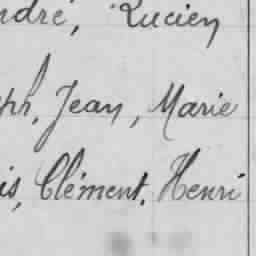 ndré, Lucien
ph, Jean, Marie
is, Clément, Henri